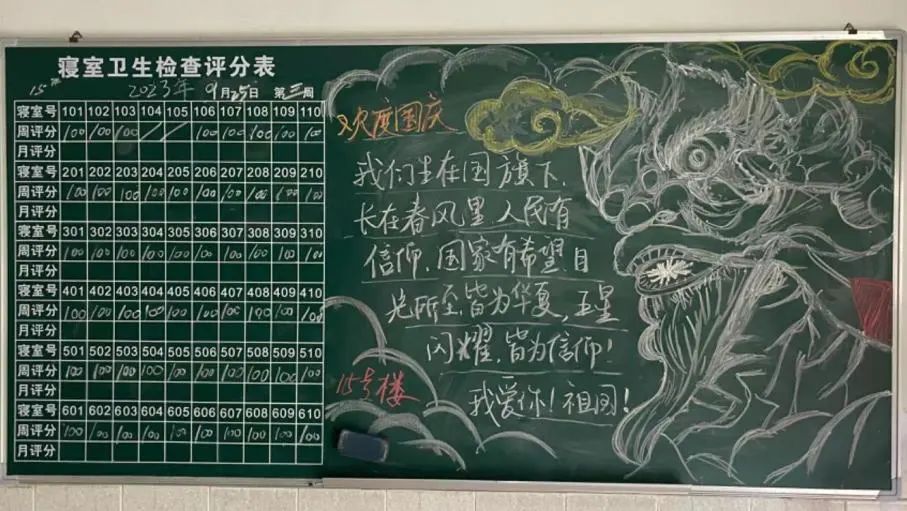 寝室卫生检查评分表
15# 2023年 9月25日 第三周
寝室号 101 102 103 104 105 106 107 108 109 110
周评分 100 100 100 / / 100 100 100 100 100
月评分
寝室号 201 202 203 204 205 206 207 208 209 210
周评分 100 100 100 100 100 100 100 100 100 100
月评分
寝室号 301 302 303 304 305 306 307 308 309 310
周评分 100 100 100 100 100 100 100 100 100 100
月评分
寝室号 401 402 403 404 405 406 407 408 409 410
周评分 100 100 100 100 100 100 100 100 100 100
月评分
寝室号 501 502 503 504 505 506 507 508 509 510
周评分 100 100 100 100 100 100 100 100 100 100
月评分
寝室号 601 602 603 604 605 606 607 608 609 610
周评分 100 100 100 100 100 100 100 100 100 100
月评分
欢度国庆
我们生在国旗下,
长在春风里 人民有
信仰,国家有希望 目
光所至,皆为华夏,五星
闪耀,皆为信仰!
我爱你!祖国!
15号楼